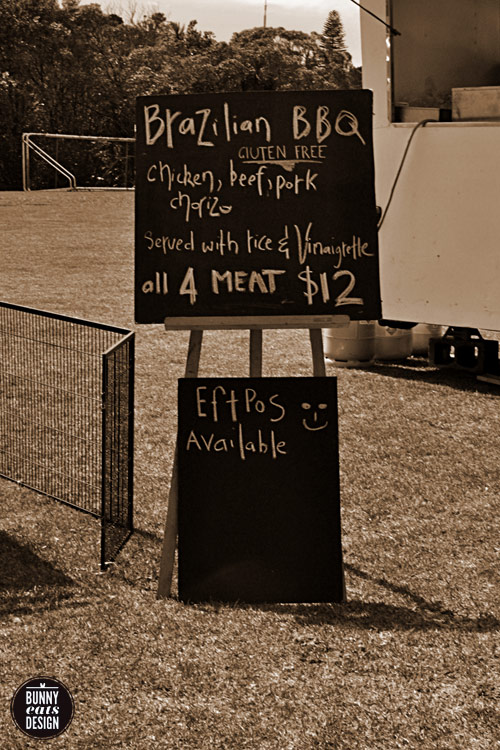 Brazilian BBQ
GLUTEN FREE
Chicken, beef, pork
chorizo
Served with rice & Vinaigrette
all 4 MEAT $12
EftPos
Available
BUNNY
eats
DESIGN